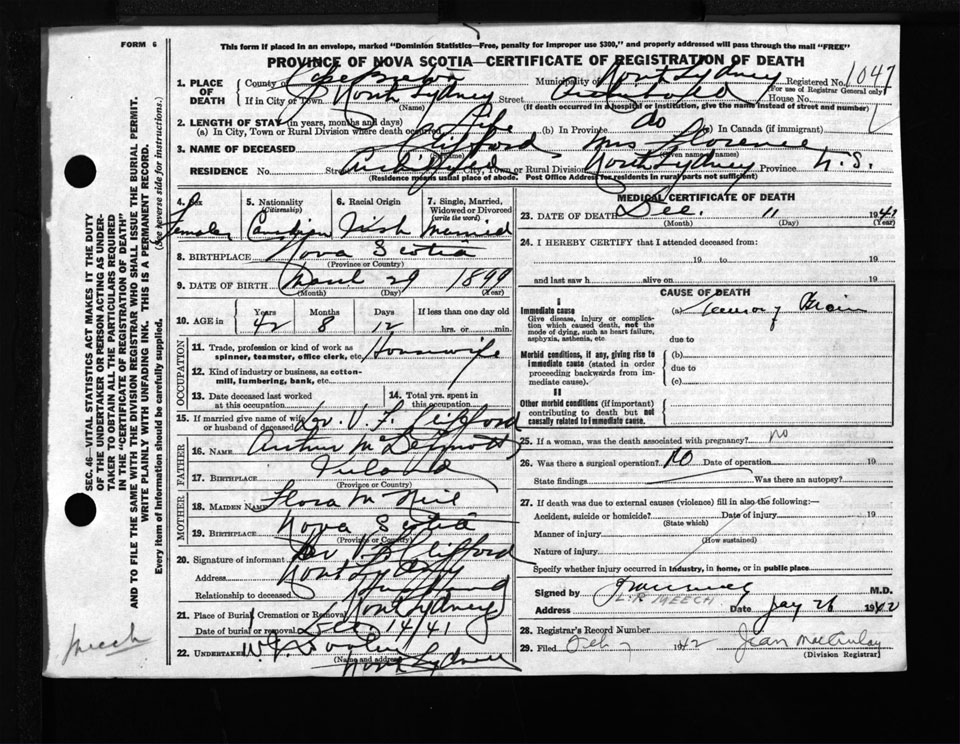 FORM 6
This form if placed in an envelope, marked "Dominion Statistics—Free, penalty for improper use $300," and properly addressed will pass through the mail "FREE"
PROVINCE OF NOVA SCOTIA—CERTIFICATE OF REGISTRATION OF DEATH
1. PLACE OF DEATH County of Cape Breton Municipality of North Sydney Registered No. 1047
(For use of Registrar General only)
If in City or Town North Sydney Street Archibald House No.
(Name) (If death occurred in a hospital or institution, give the name instead of street and number)
2. LENGTH OF STAY (in years, months and days)
(a) In City, Town or Rural Division where death occurred Life (b) In Province do (c) In Canada (if immigrant)
3. NAME OF DECEASED Clifford Mrs Florence
(Given name or names)
RESIDENCE No. Street City, Town or Rural Division North Sydney Province N.S.
(Residence means usual place of abode. Post Office Address for residents in rural parts not sufficient)
4. Sex Female
5. Nationality (Citizenship) Canadian
6. Racial Origin Irish
7. Single, Married, Widowed or Divorced (write the word) Married
8. BIRTHPLACE Nova Scotia
(Province or Country)
9. DATE OF BIRTH March 29 1899
(Month) (Day) (Year)
10. AGE in Years Months Days If less than one day old
42 8 12 hrs. or min.
OCCUPATION
11. Trade, profession or kind of work as spinner, teamster, office clerk, etc. Housewife
12. Kind of industry or business, as cotton-mill, lumbering, bank, etc.
13. Date deceased last worked at this occupation
14. Total yrs. spent in this occupation
15. If married give name of wife or husband of deceased V. F. Clifford
FATHER
16. NAME Arthur McDermott
17. BIRTHPLACE Ireland
(Province or Country)
MOTHER
18. MAIDEN NAME Flora McNeil
19. BIRTHPLACE Nova Scotia
(Province or Country)
20. Signature of informant V. F. Clifford
Address North Sydney
Relationship to deceased Husband
21. Place of Burial, Cremation or Removal North Sydney
Date of burial or removal Dec 14/41
22. UNDERTAKER
(Name and address) North Sydney
MEDICAL CERTIFICATE OF DEATH
23. DATE OF DEATH Dec. 11 1941
(Month) (Day) (Year)
24. I HEREBY CERTIFY that I attended deceased from:
19 to 19
and last saw h alive on 19
CAUSE OF DEATH
I
Immediate cause
Give disease, injury or complication which caused death, not the mode of dying, such as heart failure, asphyxia, asthenia, etc
(a)
due to
Morbid conditions, if any, giving rise to immediate cause (stated in order proceeding backwards from immediate cause).
(b)
due to
(c)
II
Other morbid conditions (if important) contributing to death but not causally related to immediate cause.
25. If a woman, was the death associated with pregnancy? no
26. Was there a surgical operation? No Date of operation 19
State findings Was there an autopsy?
27. If death was due to external causes (violence) fill in also the following:—
Accident, suicide or homicide? Date of injury 19
(State which)
Manner of injury
(How sustained)
Nature of injury
Specify whether injury occurred in industry, in home, or in public place
Signed by M.D.
L.R MEECH
Address Date Jany 26 1942
28. Registrar's Record Number
29. Filed Feb 1942 Jean
(Division Registrar)
SEC. 46—VITAL STATISTICS ACT MAKES IT THE DUTY
OF THE UNDERTAKER OR PERSON ACTING AS UNDERTAKER
TO OBTAIN ALL THE PARTICULARS REQUIRED
IN THE "CERTIFICATE OF REGISTRATION OF DEATH"
AND TO FILE THE SAME WITH THE DIVISION REGISTRAR WHO SHALL ISSUE THE BURIAL PERMIT.
WRITE PLAINLY WITH UNFADING INK. THIS IS A PERMANENT RECORD.
Every item of information should be carefully supplied. (See reverse side for instructions.)
Meech